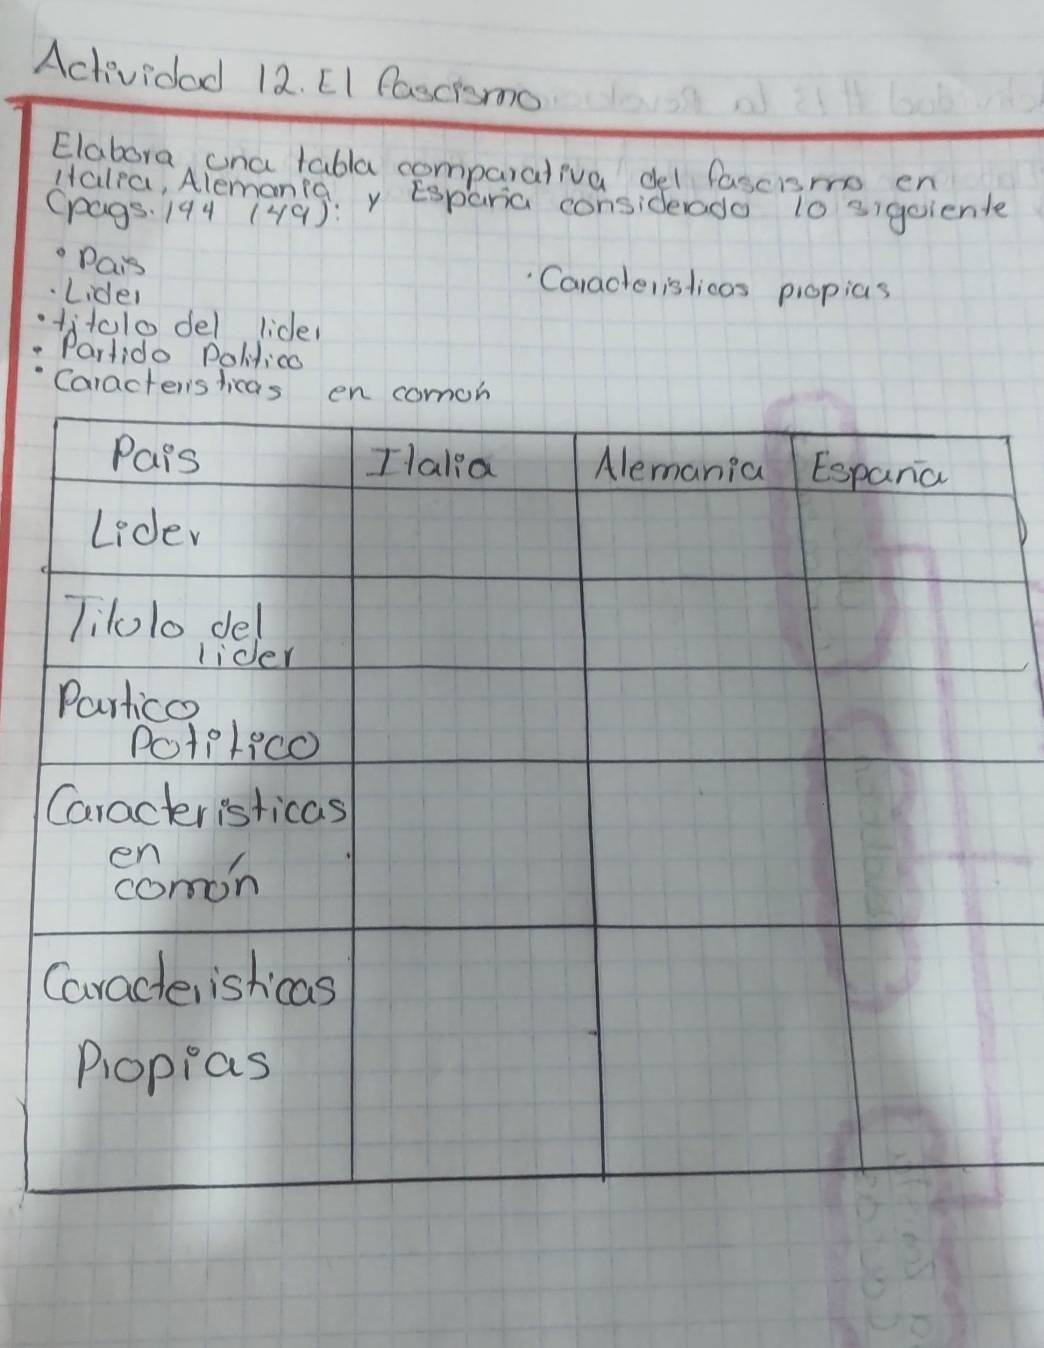 Actividad 12. El fascismo
Elabora una tabla comparativa del fascismo en
italia, Alemania y España considerado lo siguiente
(pags. 144 149):
• Pais
• Lider
• titulo del lider
• Partido Politico
• Caracteristicas en comun
• Caracteristicas propias
Pais Italia Alemania España
Lider
Titulo del
lider
Partico
Politico
Caracteristicas
en
común
Caracteristicas
Propias